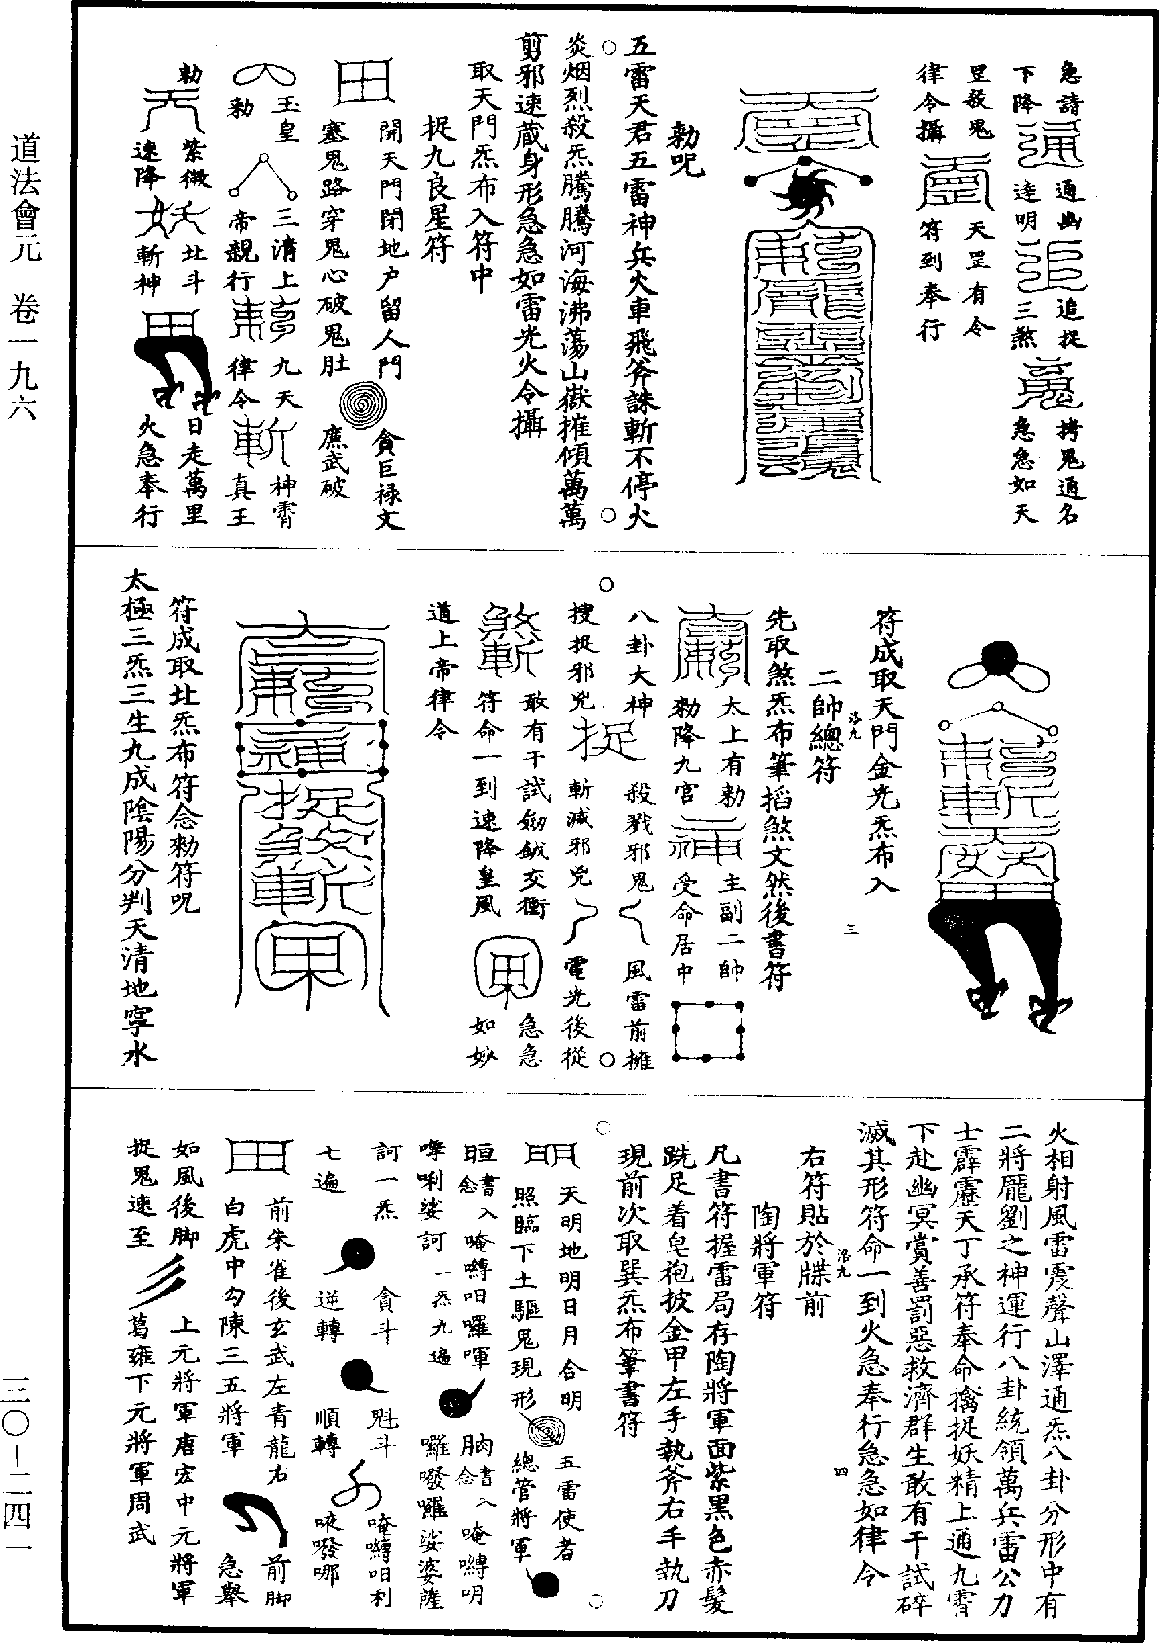 道法會元 卷一九六
急請
下降
通幽
逹明
追捉
三煞
拷鬼通名
急急如天
罡殺鬼
律令攝
天罡有令
符到奉行
勑呪
五雷天君五雷神兵火車飛斧誅斬不停火
炎烟烈殺炁騰騰河海沸蕩山嶽摧傾萬萬
剪邪速藏身形急急如雷光火令攝
取天門炁布入符中
捉九良星符
開天門閉地户留人門
塞鬼路穿鬼心破鬼肚
貪巨禄文
廉武破
玉皇
勑
三清上
帝親行
九天
律令
神霄
真王
勑
紫微
速降
北斗
斬神
日走萬里
火急奉行
符成取天門金光炁布入
二帥總符
先取煞炁布筆掐煞文然後書符
太上有勑
勑降九宫
主副二帥
受命居中
八卦大神
搜捉邪兇
殺戮邪鬼
斬滅邪兇
風雷前擁
電光後從
敢有干試㓜鉞交衝
符命一到速降皇風
急急
如妙
道上帝律令
符成取北炁布符念勑符呪
太極三炁三生九成陰陽分判天清地寧水
火相射風雷震聲山澤通炁八卦分形中有
二將龎劉之神運行八卦統領萬兵雷公力
士霹靂天丁承符奉命擒捉妖精上通九霄
下赴幽冥賞善罰惡救濟群生敢有干試碎
滅其形符命一到火急奉行急急如律令
右符貼於牒前
陶將軍符
凡書符握雷局存陶將軍面紫黑色赤髪
跣足着皂袍披金甲左手執斧右手執刀
現前次取巽炁布筆書符
明
天明地明日月合明
照臨下土驅鬼現形
五雷使者
總管將軍
書入唵嚩呬囉唓
書入唵嚩呬
嗱唎娑訶
一炁九遍
囉㘄囉娑婆薩
訶一炁
七遍
貪斗
逆轉
魁斗
順轉
唵嚩呬利
㗭㘄哪
前朱雀後玄武左青龍右
白虎中勾陳三五將軍
前脚
急舉
如風後脚
捉鬼速至
上元將軍唐宏中元將軍
葛雍下元將軍周武
三〇－二四一